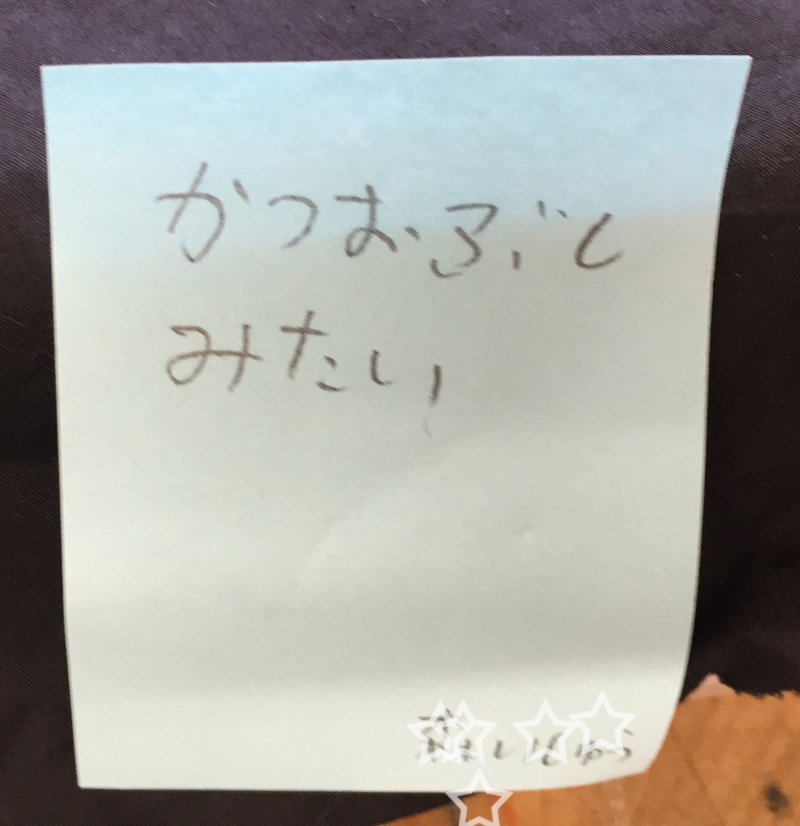 かつおぶし
みたい